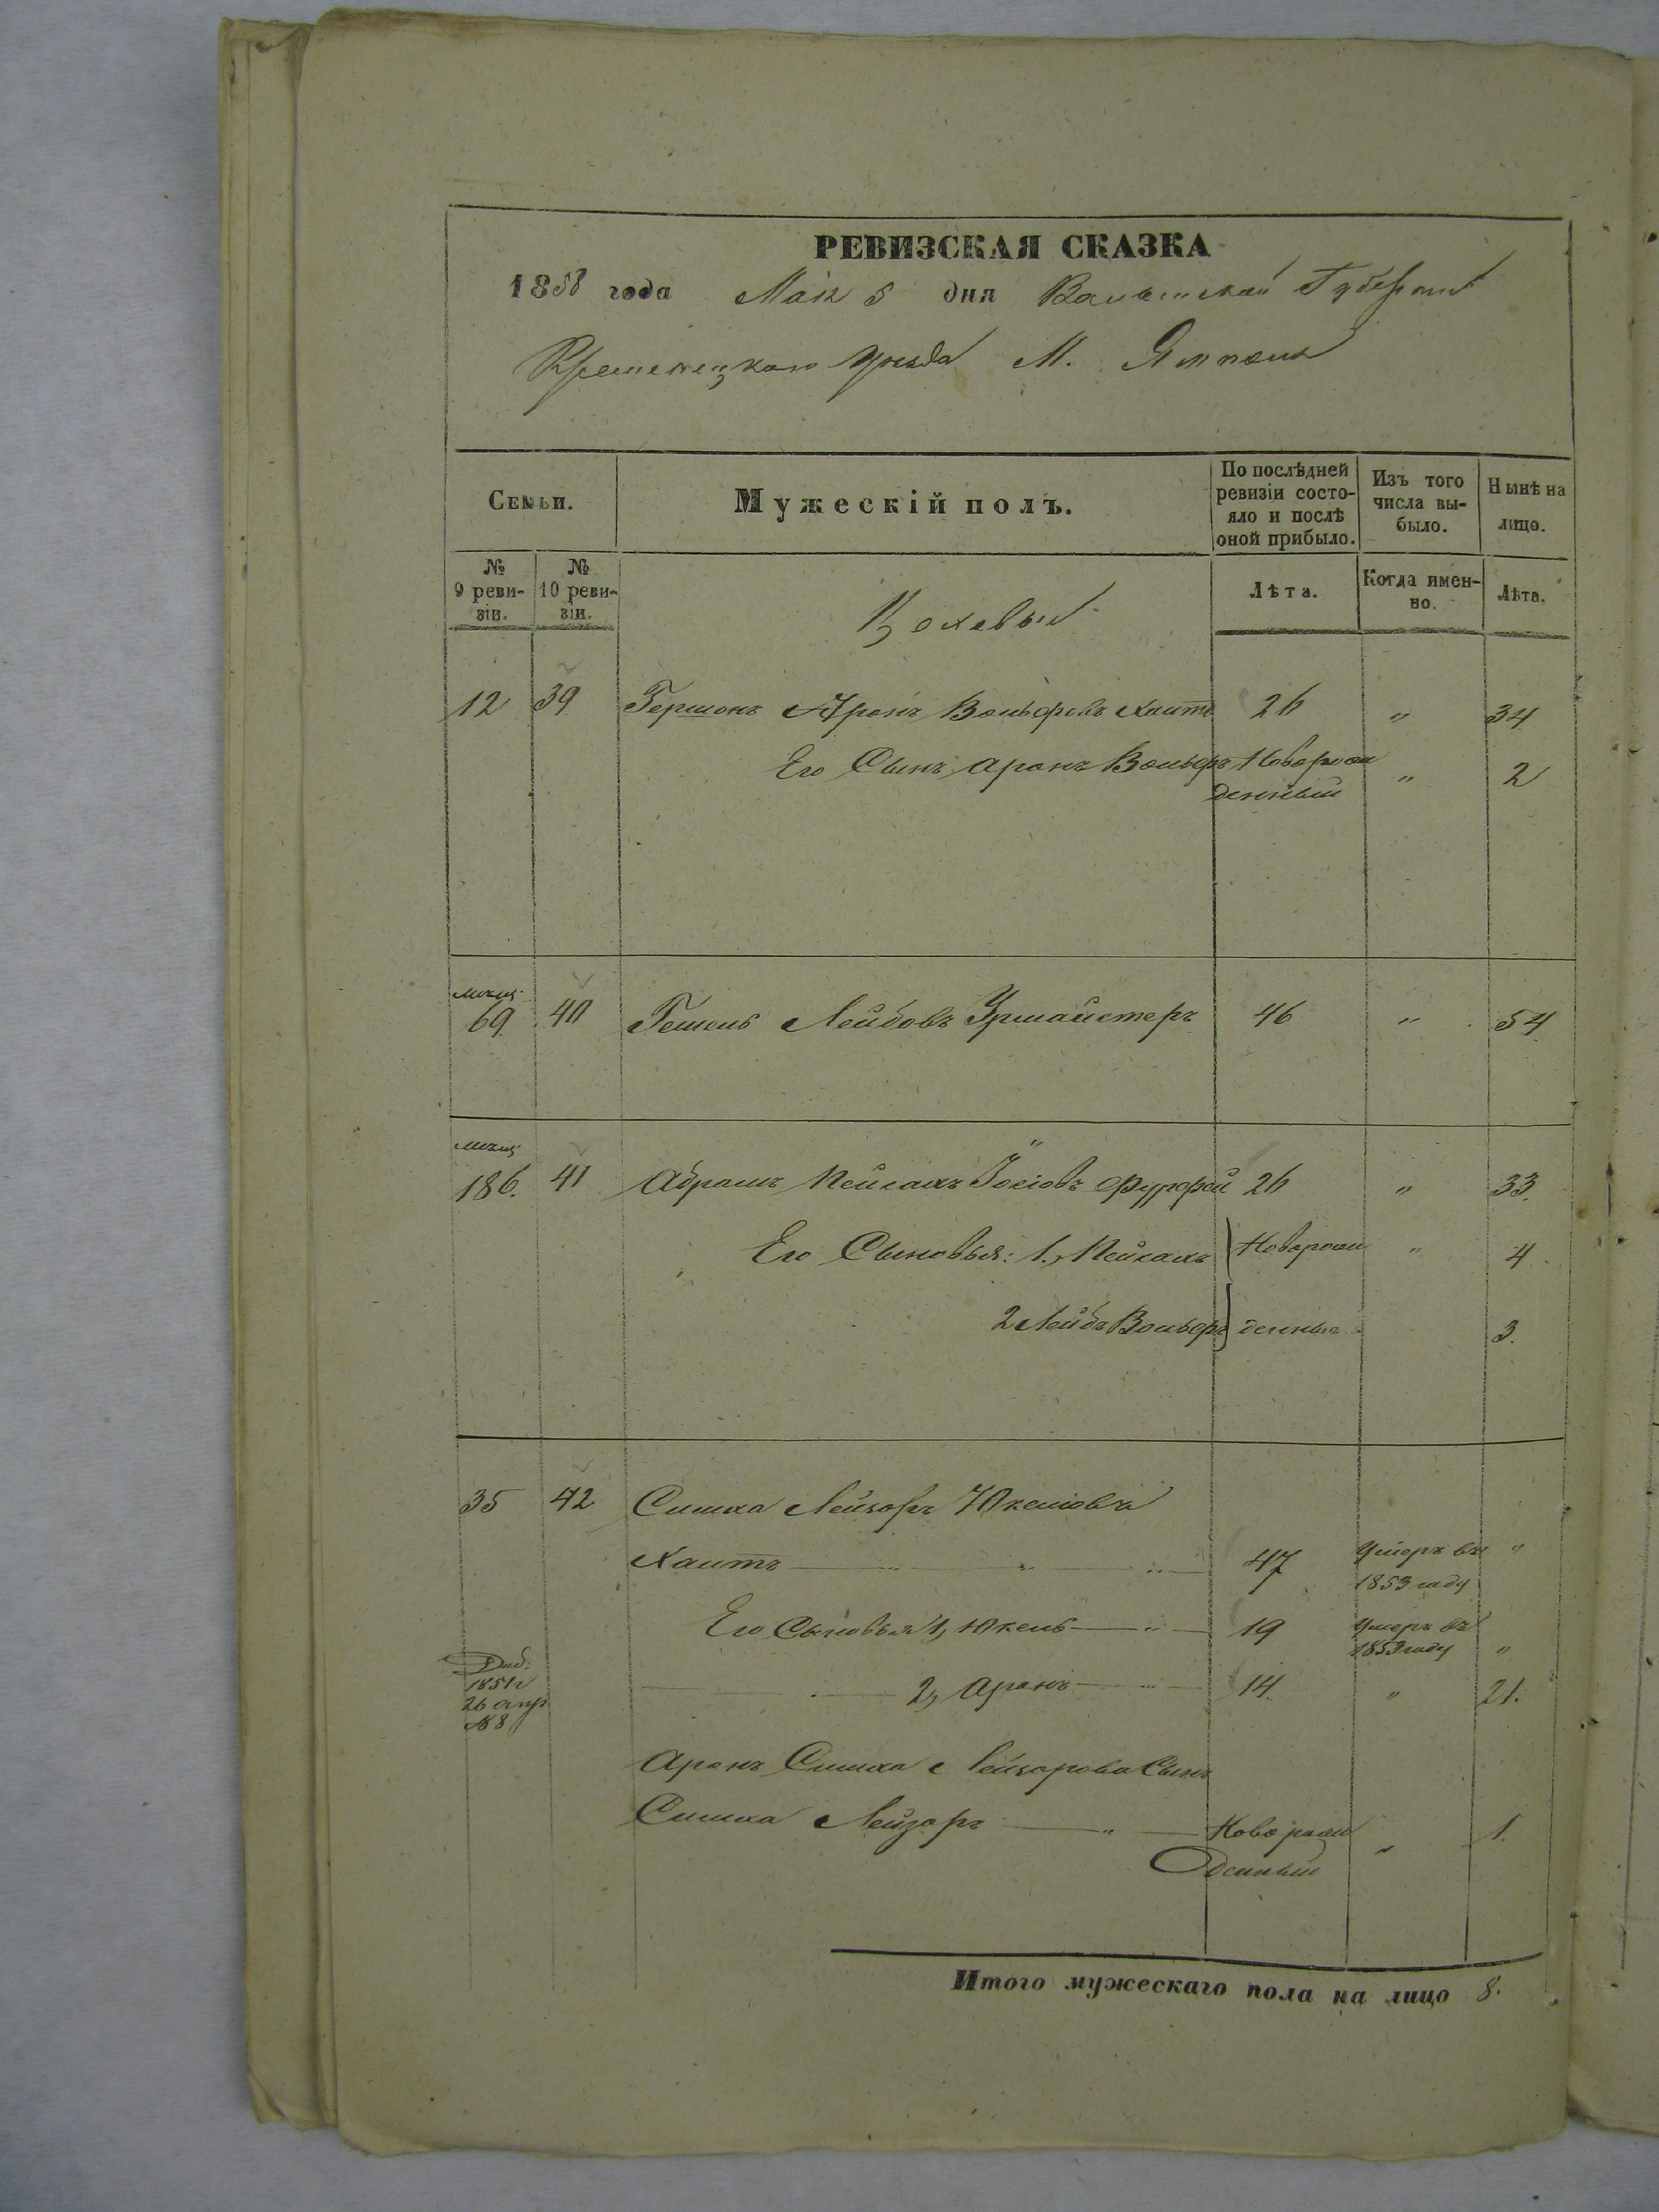 РЕВИЗСКАЯ СКАЗКА
1858 года Мая 5 дня Волынской Губернии
Кременецкаго уезда М. Ямполя
Семьи. Мужескій полъ. По послѣдней ревизіи состояло и послѣ оной прибыло. Изъ того числа выбыло. Нынѣ на лицо.
№ 9 ревизіи. № 10 ревизіи. Лѣта. Когда именно. Лѣта.
Цеховые
12 39 Гершонъ Аронъ Вольфовъ Хаитъ 26 " 34
Его Сынъ Аронъ Вольфъ Новорож
денный " 2
69 40 Гешель Лейбовъ Урмайстеръ 46 " 54
186. 41 Абрамъ Пейсахъ Іосіовъ Фурфей 26 " 33.
Его Сыновья: 1, Пейсахъ Новорож " 4
2 Лейбъ Вольфъ денные 3.
35 42 Симха Лейзоръ Юкеліовъ
Хаитъ 47 Умеръ въ "
1853 году
Его Сыновья 1, Юкель 19 Умеръ въ
1853 году "
2, Аронъ 14. " 21.
1851
26 апр
№ 8
Аронъ Симха Лейзорова Сынъ
Симха Лейзоръ Новорож " 1.
денный
Итого мужескаго пола на лицо 8.